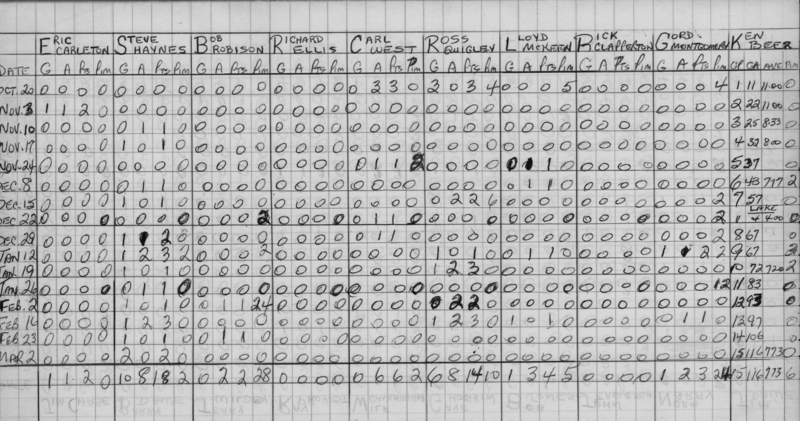 ERIC CARLETON STEVE HAYNES BOB ROBISON RICHARD ELLIS CARL WEST ROSS QUIGLEY LLOYD MCKEEN RICK CLAPPERTON GORD. MONTGOMERY KEN BEER
DATE G A Pts Pim G A Pts Pim G A Pts Pim G A Pts Pim G A Pts Pim G A Pts Pim G A Pts Pim G A Pts Pim G A Pts Pim GP GA AVG Pim
OCT. 20 0 0 0 0 0 0 0 0 0 0 0 0 0 0 0 0 0 3 3 0 2 0 3 4 0 0 0 5 0 0 0 0 0 0 0 4 1 11 11.00 0
NOV. 3 1 1 2 0 0 0 0 0 0 0 0 0 0 0 0 0 0 0 0 0 0 0 0 0 0 0 0 0 0 0 0 0 0 0 0 0 2 22 11.00 0
NOV. 10 0 0 0 0 0 1 1 0 0 0 0 0 0 0 0 0 0 0 0 0 0 0 0 0 0 0 0 0 0 0 0 0 0 0 0 0 3 25 8.33 0
NOV. 17 0 0 0 0 1 0 1 0 0 0 0 0 0 0 0 0 0 0 0 0 0 0 0 0 0 0 0 0 0 0 0 0 0 0 0 0 4 32 8.00 0
NOV. 24 0 0 0 0 0 0 0 0 0 0 0 0 0 0 0 0 0 1 1 2 0 0 0 0 0 1 1 0 0 0 0 0 0 0 0 0 5 37
DEC. 8 0 0 0 0 0 1 1 0 0 0 0 0 0 0 0 0 0 0 0 0 0 0 0 0 0 1 1 0 0 0 0 0 0 0 0 2 6 43 7.17 2
DEC. 15 0 0 0 0 1 0 1 0 0 0 0 0 0 0 0 0 0 0 0 0 0 2 2 6 0 0 0 0 0 0 0 0 0 0 0 2 7 57 0
DEC 22 0 0 0 0 0 0 0 0 0 0 0 2 0 0 0 0 0 1 1 0 0 0 0 0 0 0 0 0 0 0 0 0 0 0 0 2 1 LAKE 4 4.00 0
DEC. 29 0 0 0 0 1 1 2 0 0 0 0 0 0 0 0 0 0 1 1 0 0 0 0 0 0 0 0 0 0 0 0 0 0 0 0 2 8 67 0
JAN 12 0 0 0 0 1 2 3 2 0 0 0 2 0 0 0 0 0 0 0 0 1 0 1 0 0 1 1 0 0 0 0 0 1 1 2 2 9 67 2
JAN. 19 0 0 0 0 1 0 1 0 0 0 0 0 0 0 0 0 0 0 0 0 1 2 3 0 0 0 0 0 0 0 0 0 0 0 0 0 10 72 7.20 2
JAN. 26 0 0 0 0 0 1 1 0 0 0 0 0 0 0 0 0 0 0 0 0 0 0 0 0 0 0 0 0 0 0 0 0 0 0 0 12 11 83 0
FEB. 2 0 0 0 0 1 0 1 0 0 1 1 24 0 0 0 0 0 0 0 0 0 2 2 0 0 0 0 0 0 0 0 0 0 0 0 0 12 93 0
FEB 14 0 0 0 0 1 2 3 0 0 0 0 0 0 0 0 0 0 0 0 0 1 2 3 0 1 0 1 0 0 0 0 0 0 1 1 0 13 97 0
FEB 23 0 0 0 0 1 0 1 0 0 1 1 0 0 0 0 0 0 0 0 0 0 0 0 0 0 0 0 0 0 0 0 0 0 0 0 0 14 106 0
MAR 2 0 0 0 0 2 0 2 0 0 0 0 0 0 0 0 0 0 0 0 0 0 0 0 0 0 0 0 0 0 0 0 0 0 0 0 0 15 116 7.73 0
1 1 2 0 10 8 18 2 0 2 2 28 0 0 0 0 0 6 6 2 6 8 14 10 1 3 4 5 0 0 0 0 1 2 3 24 15 116 7.73 6